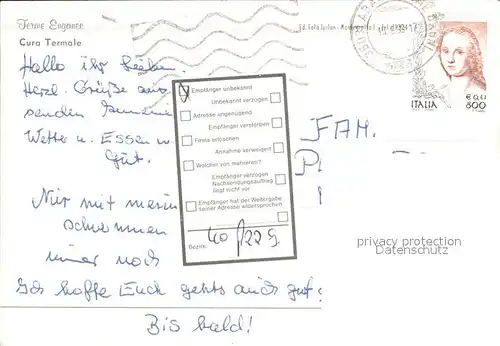 Terme Euganee
Cura Termale
Hallo ihr lieben
Herzl. Grüße aus
senden
Wetter u. Essen
Gut.
Nur mit
schwimmen
immer noch
Ich hoffe Euch gehts auch gut
Bis bald!
Empfänger unbekannt
Unbekannt verzogen
Adresse ungenügend
Empfänger verstorben
Firma erloschen
Annahme verweigert
Welcher von mehreren?
Empfänger verzogen
Nachsendungsauftrag
liegt nicht vor
Empfänger hat der Weitergabe
seiner Adresse widersprochen
Bezirk:
ITALIA
€ 0,41
800
FAM.
privacy protection
VDMedien24.de